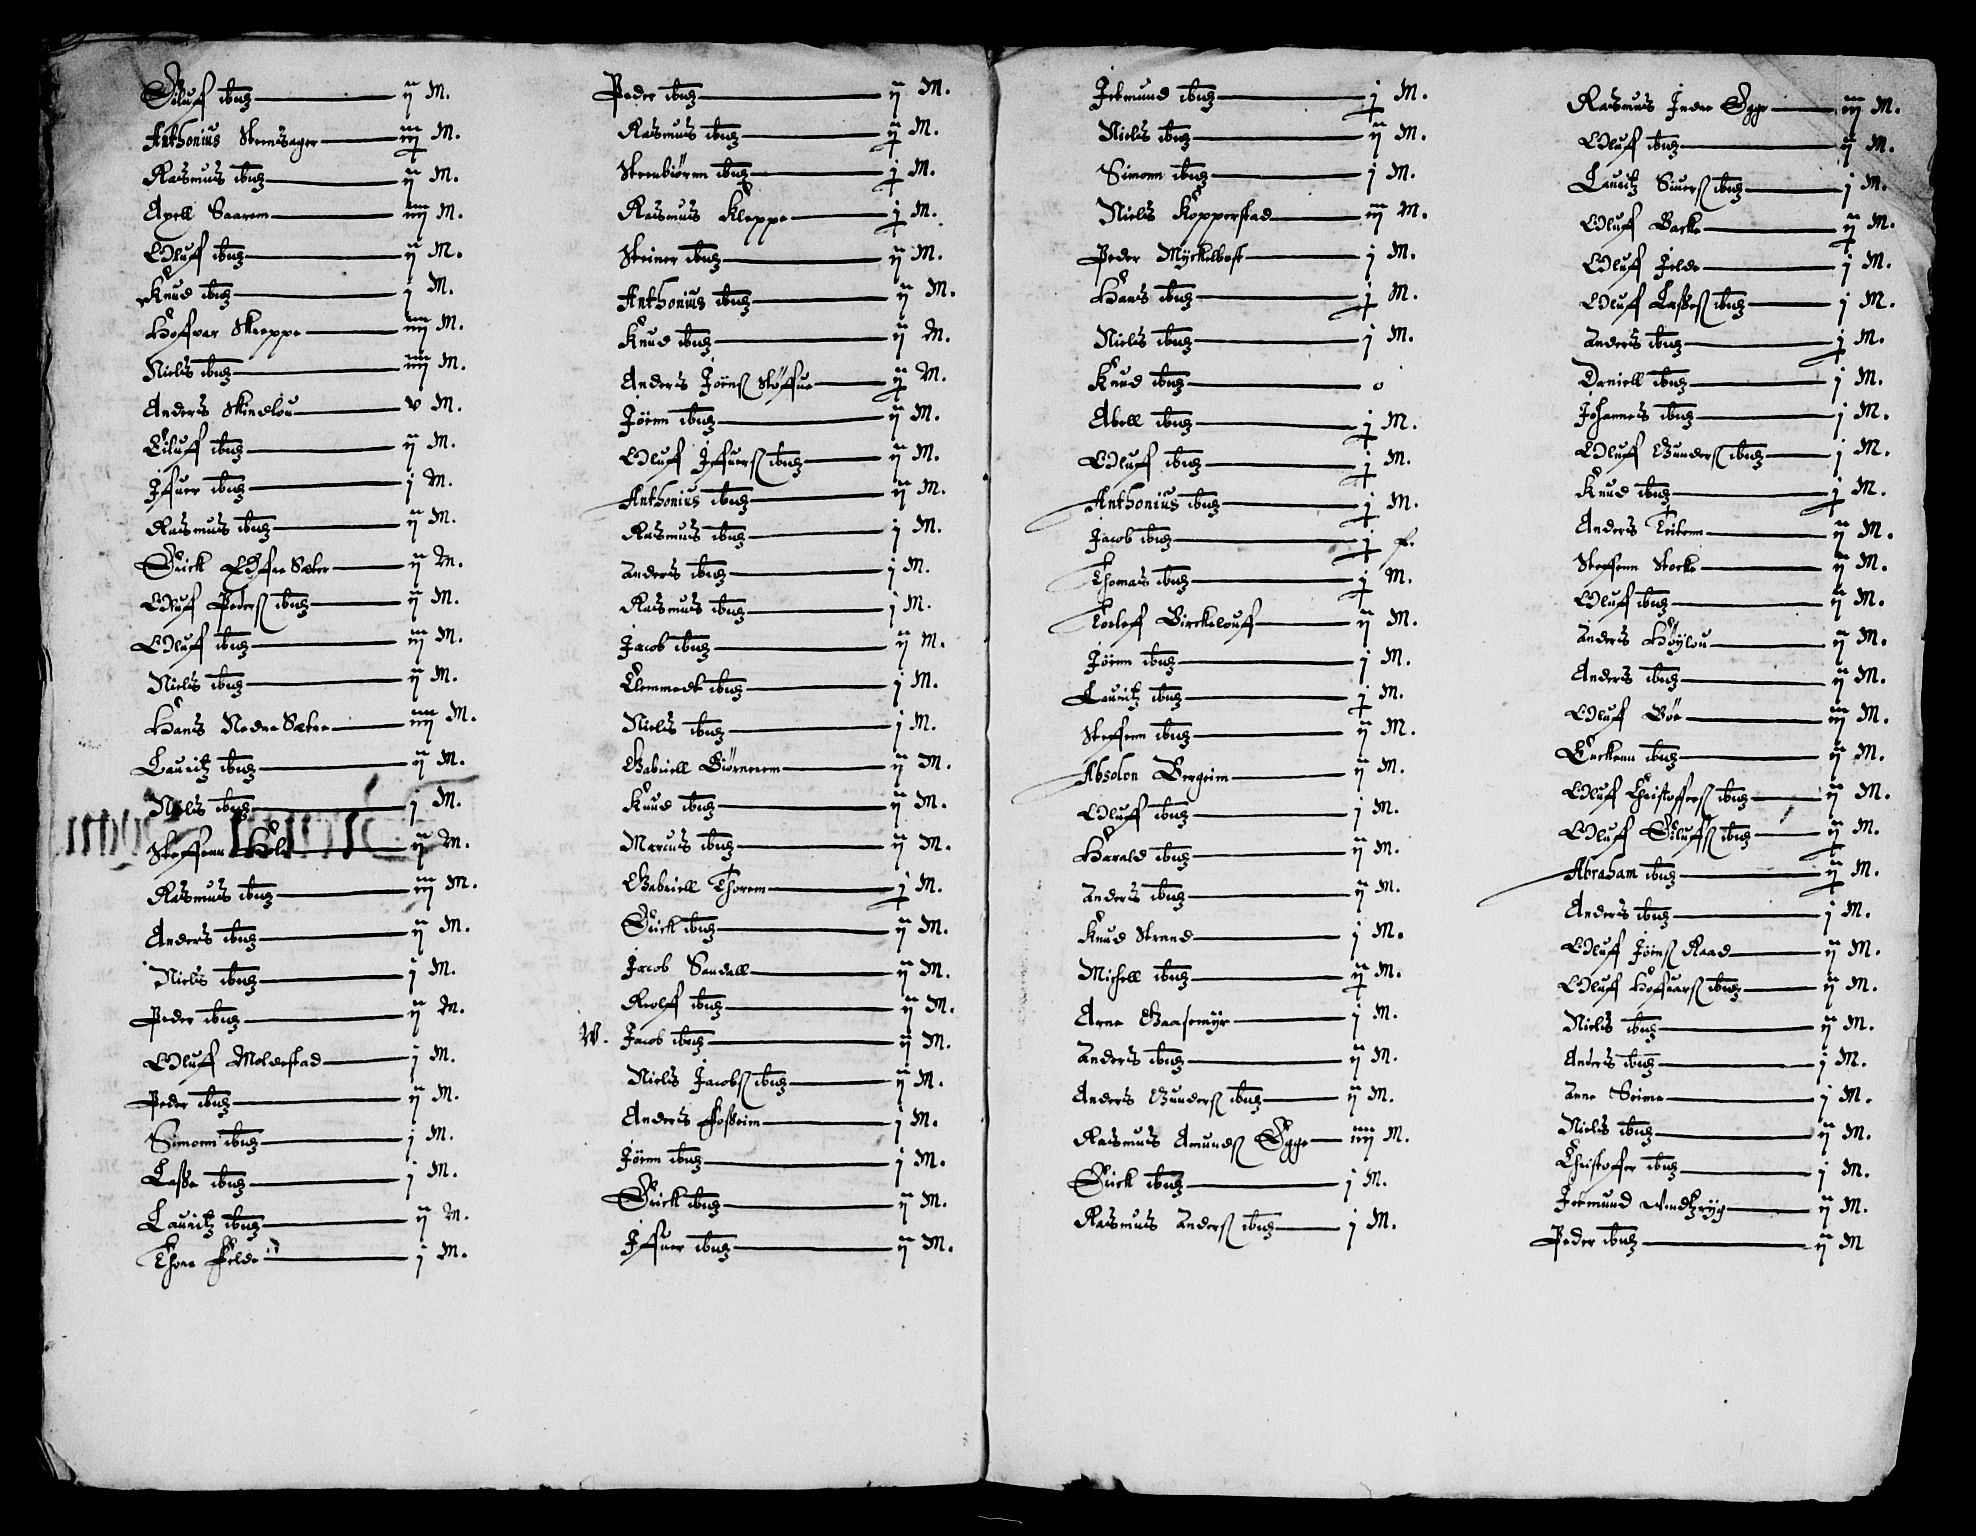 Eiluff ibid ij M.
Anthonius Stemsager iij M.
Rasmus ibid ij M.
Axell Saarem iiij M.
Oluff ibid ij M.
Knud ibid j M.
Hoffuar Skeppe iiij M.
Niels ibid iiij M.
Anders Skindlou v M.
Eiluff ibid ij M.
Jffuer ibid j M.
Rasmus ibid ij M.
Erick Øfre Sæter ij M.
Oluf Peders ibid ij M.
Oluff ibid iij M.
Niels ibid ij M.
Hans Nedre Sætre iiij M.
Lauritz ibid ij M.
Niels ibid j M.
Steffenn Hole ij M.
Rasmus ibid iij M.
Anders ibid ij M.
Niels ibid j M.
Peder ibid ij M.
Oluff Molderstad j M.
Peder ibid ij M.
Simonn ibid j M.
Lasse ibid j M.
Lauritz ibid ij M.
Thore Felde j M.
Peder ibid ij M.
Rasmus ibid ij M.
Steenbiørnn ibid j M.
Rasmus Kleppe j M.
Steiner ibid ij M.
Anthonius ibid ij M.
Knud ibid ij M.
Anders Jørns Støffue ij M.
Jørnn ibid ij M.
Oluff Jffuers ibid ij M.
Anthonius ibid ij M.
Rasmus ibid j M.
Anders ibid j M.
Rasmus ibid j M.
Jacob ibid ij M.
Clemmedt ibid j M.
Niels ibid j M.
Gabriell Biørnerem ij M.
Knud ibid ij M.
Marcus ibid ij M.
Gabriell Thorem j M.
Erick ibid ij M.
Jacob Sandall ij M.
Rolff ibid ij M.
Jacob ibid ij M.
Niels Jacobs ibid ij M.
Anders Fosheim j M.
Jørnn ibid j M.
Erick ibid ij M.
Jffuer ibid ij M.
Jetmund ibid j M.
Niels ibid ij M.
Simonn ibid j M.
Niels Kopperstad iij M.
Peder Myckelbost j M.
Hans ibid j M.
Niels ibid j M.
Knud ibid o
Abell ibid j M.
Oluff ibid j M.
Anthonius ibid j M.
Jacob ibid j
Thomas ibid j M.
Torleff Birckelouff ij M.
Jørnn ibid j M.
Lauritz ibid j M.
Steffenn ibid ij M.
Absolon Bergeim ij M.
Oluff ibid j M.
Harald ibid ij M.
Anders ibid ij M.
Knud Strand j M.
Michell ibid ij M.
Arne Gaasemyr j M.
Anders ibid ij M.
Anders Gunders ibid ij M.
Rasmus Amunds Egge iiij M.
Erick ibid j M.
Rasmus Anders ibid j M.
Rasmus Indre Egge iij M.
Oluff ibid ij M.
Lauritz Siuers ibid j M.
Oluff Backe ij M.
Oluff Felde j M.
Oluff Lasses ibid j M.
Anders ibid j M.
Daniell ibid j M.
Johannes ibid j M.
Oluff Gunders ibid j M.
Knud ibid j M.
Anders ij M.
Steffenn Stocke ij M.
Oluff ibid ij M.
Anders Høylou ij M.
Anders ibid ij M.
Oluff Bøe iij M.
ibid ij M.
Oluff Christoffers ibid ij M.
Oluff Eiluffs ibid ij M.
Abraham ibid ij M.
Anders ibid j M.
Oluff Jørns Raad ij M.
Oluff Hoffuars ibid ij M.
Niels ibid ij M.
Anders ibid j M.
Arne Seime j M.
Niels ibid ij M.
Christoffer ibid j M.
Jetmund ij M.
Peder ibid ij M